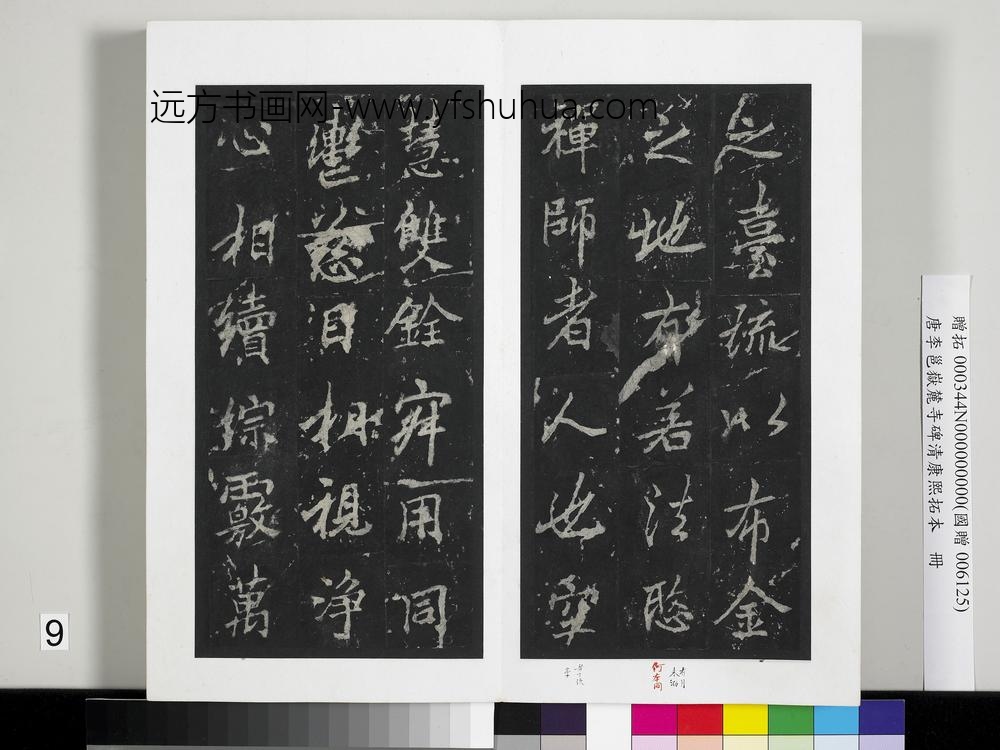 远方书画网-www.yfshuhua.com
之臺疏以布金
之地有若法愍
禪師者人也空
慧雙銓寂用同
轡慈目相視淨
心相續綜覈萬
贈拓 000344N000000000(國贈 006125)
唐李邕嶽麓寺碑清康熙拓本 冊
9